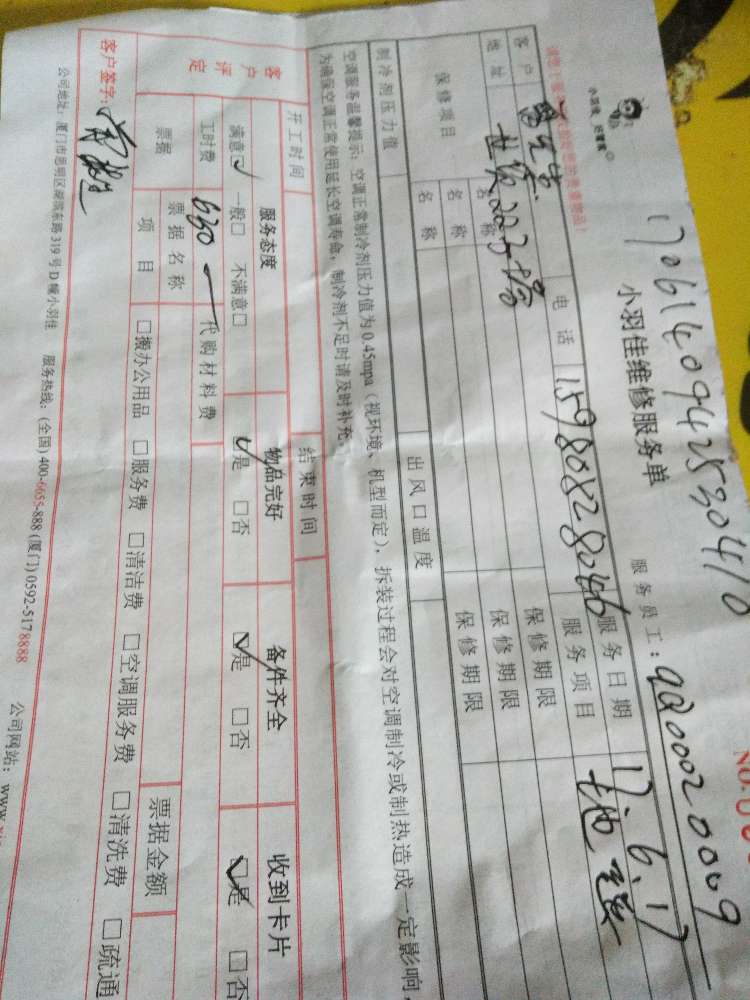 1706140942530410
NO.
小羽佳维修服务单
服务员工:
客户
电话 15980828046
服务日期 17.6.17
地址
服务项目
保修项目
名称
保修期限
名称
保修期限
名称
保修期限
制冷剂压力值
出风口温度
空调服务温馨提示:空调正常制冷剂压力值为0.45mpa(视环境、机型而定),拆装过程会对空调制冷或制热造成一定影响,
为确保空调正常使用延长空调寿命,制冷剂不足时请及时补充。
开工时间
结束时间
客户评定
服务态度
物品完好
备件齐全
收到卡片
满意☑ 一般□ 不满意□
☑是 □否
☑是 □否
☑是 □否
工时费 630
代购材料费
票据
票据名称
票据金额
项目
□搬办公用品 □服务费 □清洁费 □空调服务费 □清洗费 □疏通
客户签字:
公司地址:厦门市思明区湖滨东路319号D幢小羽佳 服务热线:(全国)400-6655-888 (厦门)0592-5178888
公司网站:www.